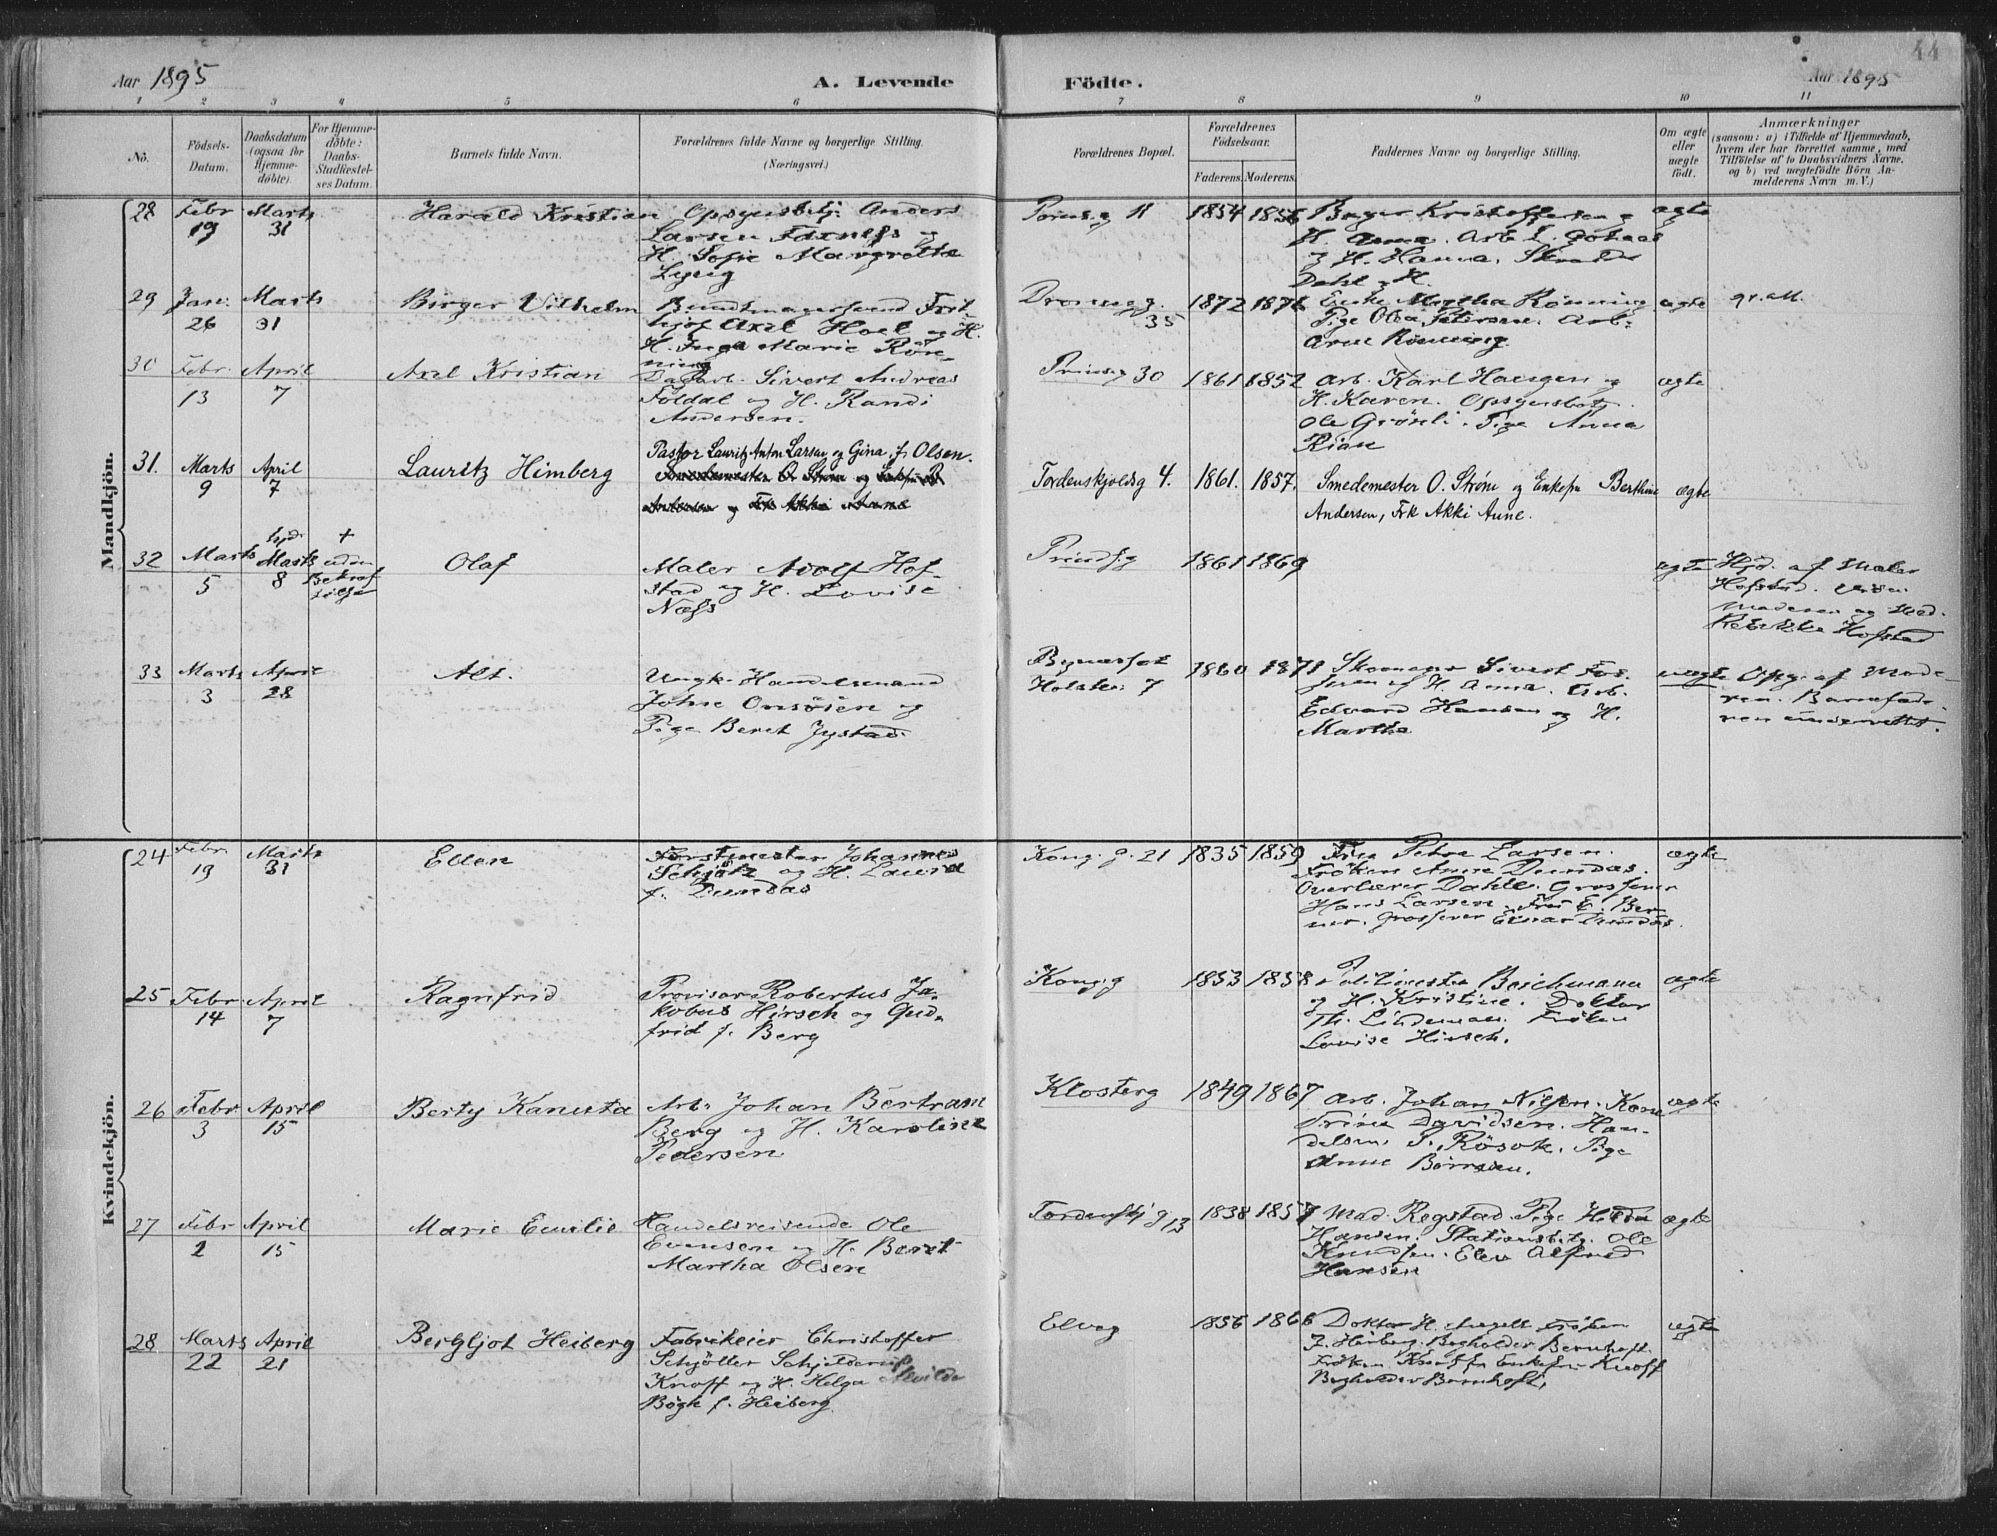 44
Aar 1895
A. Levende
Födte.
Aar 1895
1 2 3 4 5 6 7 8 9 10 11
No.
Födsels-
Datum.
Daabsdatum
(ogsaa for
Hjemme-
döbte).
For Hjemme-
döbte:
Daabs-
Stadfæstel-
ses Datum.
Barnets fulde Navn.
Forældrenes fulde Navne og borgerlige Stilling.
(Næringsvei.)
Forældrenes Bopæl.
Forældrenes
Födselsaar.
Faderens. Moderens.
Faddernes Navne og borgerlige Stilling.
Om ægte
eller
uægte
födt.
Anmærkninger
(saasom: a) i Tilfælde af Hjemmedaab,
hvem der har forrettet samme, med
Tilföielse af to Daabsvidners Navne.
og b) ved uægtefödte Börn An-
melderens Navn m. V.)
Mandkjön.
28 Febr 19 Marts 31 Harald Kristian
Opsynsbetj. Anders
Larsen Faxness og
H. Sofie Margrethe
Lyng
11 1854 1856
Birger Kristoffersen og
H. Anna. Arb. L.
og H. Hanna.
Dahl og H.
ægte
29 Jan. 26 Marts 31 Birger Vilhelm
Bundtmagersvend Frit-
hjof Axel Hoel og H.
H. Inga Marie Rön-
ning
Dronng. 35 1872 1876
Enke Martha Rönning
Pige Olea Petersen. Arb.
Arne Rönning.
ægte
gr. att.
30 Febr. 13 April 7 Axel Kristian
Dagarb. Sivert Andreas
Foldal og H. Randi
Andersen.
Prinsg 30 1861 1852
Arb. Karl Haugen og
H. Karen. Opsynsbetj.
Ole Grönli. Pige Anna
Rian
ægte
31. Marts 9 April 7 Lauritz Himberg
Pastor Lauritz Anton Larsen og Gina f. Olsen.
Smedemester O. Strøm og Enkefru B
Andersen og Frk Akki Aune
Tordenskjoldsg 4. 1861. 1857.
Smedemester O. Strøm og Enkefru Berthine
Andersen, Frk Akki Aune.
ægte
32 Marts 5 hjd. Marts 8 + uden
Bekræf
telse
Olaf
Maler Adolf Hof-
stad og H. Lovise
Næss
Prindsg 1861 1869
ægte
Hjd. af Maler
Hofstad. Vidner
Madsen og Mad.
Rebekka Hofstad
33 Marts 3 April 28 Alf.
Ungk. Handelsmand
John Onsöien og
Pige Beret Jystad.
Bynesset
Holster. 7
1860 1871
Skomager Sivert
og H. Anna. Arb.
Edvard Hansen og H.
Martha
uægte
Opg. af Mode-
ren. Barnefade-
ren underrettet.
Kvindekjön.
24 Febr. 19 Marts 31 Ellen
Forstmester Johannes
Schjötz og H. Laura
f. Dundas
Kong. g. 21 1835 1859
Fru Petra Larsen.
Fröken Anna Dundas.
Overlærer Dahle. Grosserer
Hans Larsen. Fru E. Ber-
ner. Grosserer Einar Dundas.
ægte
25 Febr 14 April 7 Ragnfrid
Provisor Robertus Ja-
kobus Hirsch og Gud-
frid f. Berg
Kong. g 1853 1858
Politimester Beichmann
og H. Kristine. Doktor
Th. Lindeman. Fröken
Lovise Hirsch.
ægte
26 Febr. 3 April 15 Berty Kanuta
Arb. Johan Bertram
Berg og H. Karoline
Pedersen
Klosterg 1849 1867
Arb. Johan Nilsen. Kone
Trine Davidsen. Han-
delsm. P. Rösok. Pige
Anne Börresen.
ægte
27 Febr 2 April 15 Marie Emilie
Handelsreisende Ole
Evensen og H. Beret
Martha Olsen
Tordenskj g 13 1838 1857
Mad. Regstad. Pige Hilda
Hansen. Stationsbetj. Ole
Knudsen. Elev Alfred
Hansen
ægte
28 Marts 22 April 21 Bergljot Heiberg
Fabrikeier Christoffer
Schjöller Schjelderup
Knoff og H. Helga Alvilde
Bögh f. Heiberg.
Elveg 1856 1866
Doktor H. Angell. Fröken
J. Heiberg. Bogholder Bernhoft.
Fröken Knoff. Enkefru Knoff
Bogholder Bernhoft.
ægte